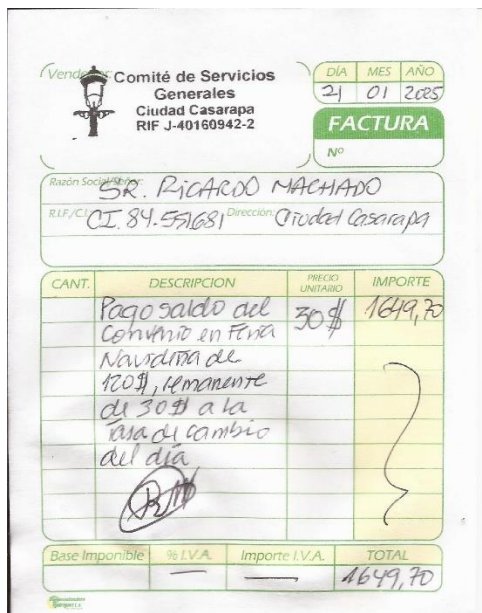 Vendedor:
Comité de Servicios
Generales
Ciudad Casarapa
RIF J-40160942-2
DÍA MES AÑO
21 01 2025
FACTURA
Nº
Razón Social/Señor: SR. RICARDO MACHADO
R.I.F./C.I. CI. 84.551681 Dirección: Ciudad Casarapa
CANT. DESCRIPCION PRECIO UNITARIO IMPORTE
Pago saldo del 30$ 1649,70
Convenio en Feria
Navideña de
120$, remanente
de 30$ a la
tasa de cambio
del día
Base Imponible % I.V.A. Importe I.V.A. TOTAL
— — 1649,70